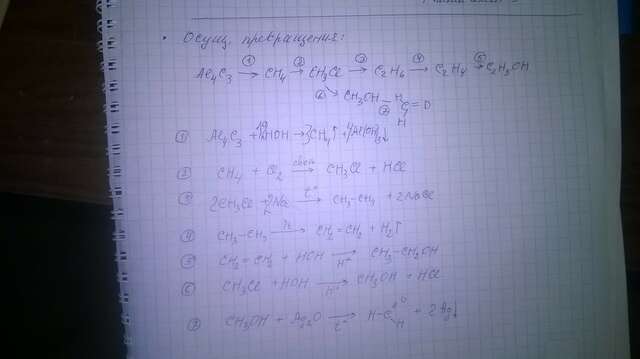 • Осущ. превращения:
① ② ③ ④ ⑤
Al₄C₃ → CH₄ → CH₃Cl → C₂H₆ → C₂H₄ → C₂H₅OH
⑥ CH₃OH – H C = O
⑦ H
① Al₄C₃ + 12HOH → 3CH₄↑ + 4Al(OH)₃↓
② CH₄ + Cl₂ свет→ CH₃Cl + HCl
③ 2CH₃Cl + 2Na t°→ CH₃-CH₃ + 2NaCl
④ CH₃-CH₃ → CH₂=CH₂ + H₂↑
⑤ CH₂=CH₂ + HOH H⁺→ CH₃-CH₂OH
⑥ CH₃Cl + HOH → CH₃OH + HCl
⑦ CH₃OH + Ag₂O t°→ H-C O H + 2Ag↓